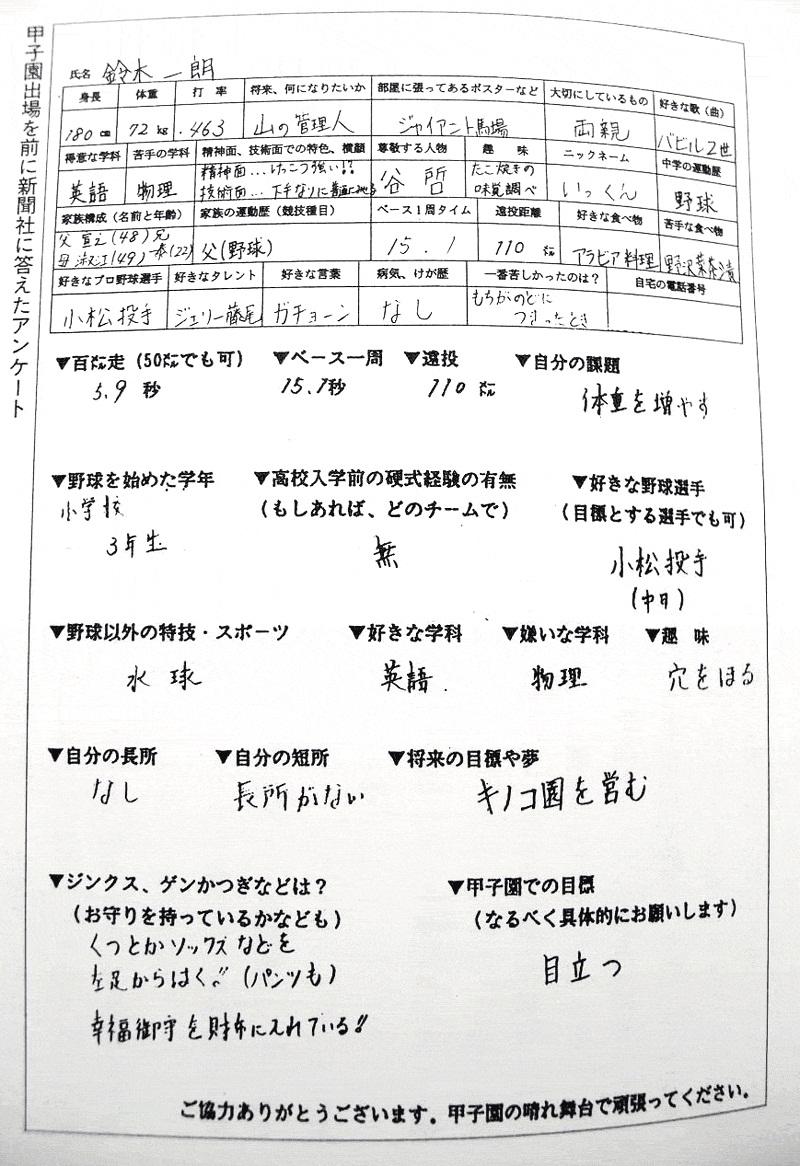 甲子園出場を前に新聞社に答えたアンケート
氏名 鈴木一朗
身長 体重 打率 将来、何になりたいか 部屋に張ってあるポスターなど 大切にしているもの 好きな歌(曲)
180cm 72kg .463 山の管理人 ジャイアント馬場 両親 バビル2世
得意な学科 苦手の学科 精神面、技術面での特色、横顔 尊敬する人物 趣味 ニックネーム 中学の運動歴
英語 物理 精神面…けっこう強い!! 谷哲 たこ焼きの いっくん 野球
技術面…下手なりに 味覚調べ
家族構成(名前と年齢) 家族の運動歴(競技種目) ベース1周タイム 遠投距離 好きな食べ物 苦手な食べ物
父宣之(48)兄 父(野球) 15.1 110㍍ アラビア料理 野沢菜茶漬
母淑江(49)一泰(22)
好きなプロ野球選手 好きなタレント 好きな言葉 病気、けが歴 一番苦しかったのは? 自宅の電話番号
小松投手 ジェリー藤尾 ガチョーン なし もちがのどに
つまったとき
▼百㍍走(50㍍でも可) ▼ベース一周 ▼遠投 ▼自分の課題
5.9秒 15.1秒 110㍍ 体重を増やす
▼野球を始めた学年 ▼高校入学前の硬式経験の有無 ▼好きな野球選手
小学校 (もしあれば、どのチームで) (目標とする選手でも可)
3年生 無 小松投手
(中日)
▼野球以外の特技・スポーツ ▼好きな学科 ▼嫌いな学科 ▼趣味
水球 英語. 物理 穴をほる
▼自分の長所 ▼自分の短所 ▼将来の目標や夢
なし 長所がない キノコ園を営む
▼ジンクス、ゲンかつぎなどは? ▼甲子園での目標
(お守りを持っているかなども) (なるべく具体的にお願いします)
くつとかソックスなどを
左足からはく!! (パンツも) 目立つ
幸福御守を財布に入れている!!
ご協力ありがとうございます。甲子園の晴れ舞台で頑張ってください。